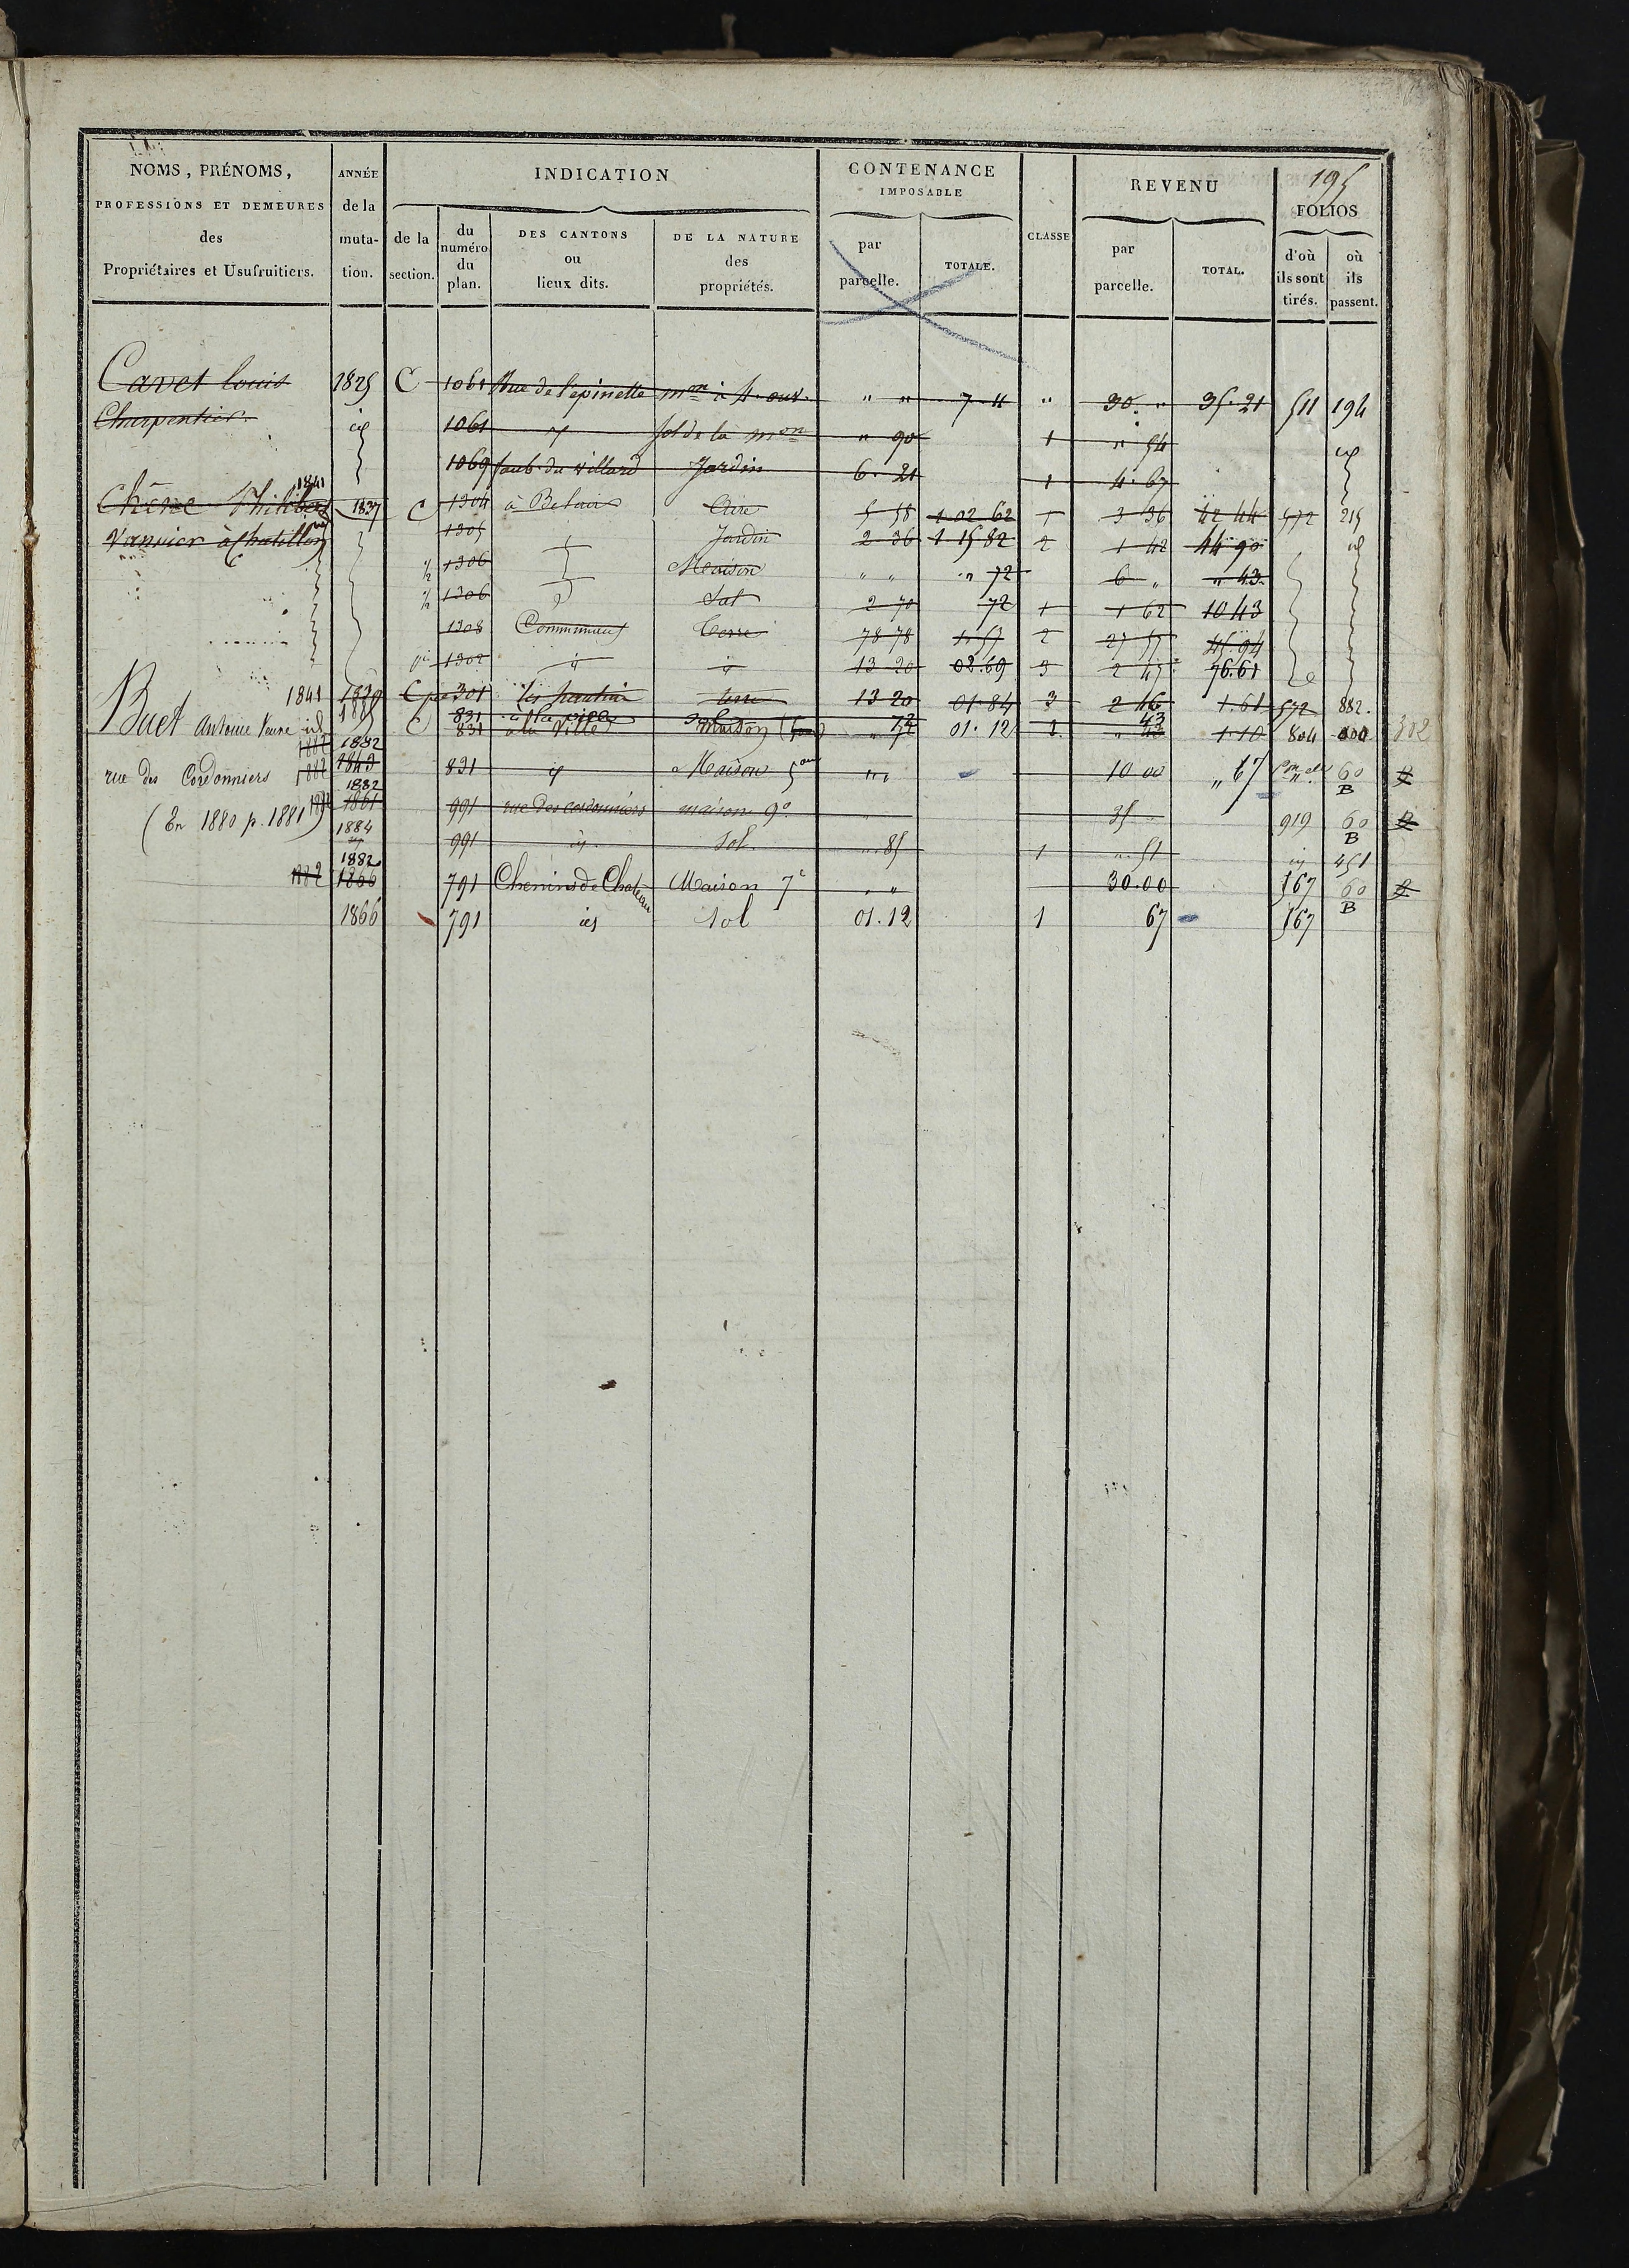 195
NOMS, PRÉNOMS,
PROFESSIONS ET DEMEURES
des
Propriétaires et Usufruitiers.
ANNÉE
de la
muta-
tion.
INDICATION
de la
section.
du
numéro
du
plan.
DES CANTONS
ou
lieux dits.
DE LA NATURE
des
propriétés.
CONTENANCE
IMPOSABLE
par
parcelle.
TOTALE.
CLASSE
REVENU
par
parcelle.
TOTAL.
FOLIOS
d'où
ils sont
tirés.
où
ils
passent.
Cavet Louis 1825 C 1061 Rue de l'épinette mon à 4 ouv. " " 7.11 " 30. " 35.21 511 194
Charpentier. id 1061 id sol de la mon " 90 1 " 54 id
1069 faub. du villard Jardin 6.21 1 4.67
1841
Chêne Philibert 1837 C 1304 à Belair 5 58 1 02 62 1 3 36 42 44 572 215
Vanvier à Chatillon 1305 Jardin 2 36 1 15 82 2 1 42 44 90 id
1/2 1306 Maison " " " 72 6 " " 43
1/2 1306 Sol 2 70 72 1 1 62 10 43
1308 Communeux Terre 78 78 1.57 2 27 57 45.94
1302 id id 13 20 02.69 3 2 45 76.61
1841 1839 C 301 terre 13 20 01.84 3 2 46 1.61 572 882.
Buet Antoine id C 831 à la Ville Maison 01.12 1 43 1.10 804 302
1882 1882
rue des Cordonniers 1882 1843 831 id Maison 5 " " 10 00 " 67 60 B
1882
(En 1880 p. 1881) 1861 991 rue des cordonniers maison 9e 35 " 919 60 B
1884 991 id Sol " 85 1 " 51 id 451
1882
1882 1866 791 Chemins de Chateau Maison 7e " " 30.00 167 60 B
1866 791 id Sol 01.12 1 67 167